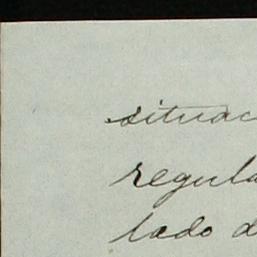 situac
regula
lado d